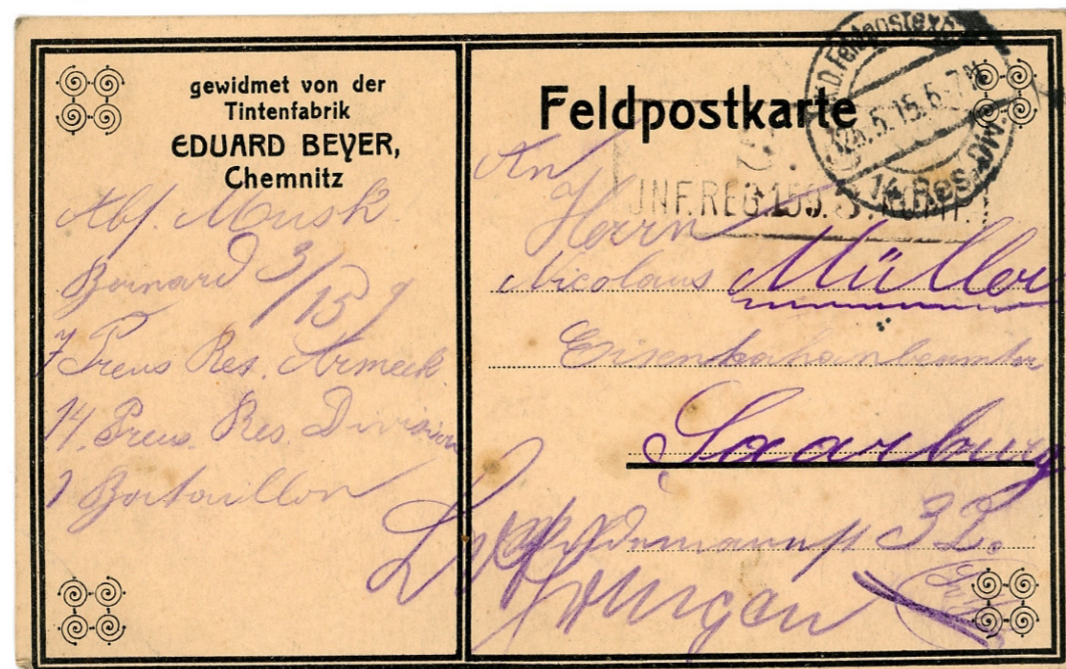 gewidmet von der
Tintenfabrik
EDUARD BEYER,
Chemnitz
Abs. Musk.
Bernard 3/159
7 Preus Res. Armeek.
14. Preus. Res. Division
1 Bataillon
Feldpostkarte
K.D. Feldpostexp.
26.5.15. 6-7N
14. Res.
INF. REG. 159.
An
Herrn
Nicolaus Müller
Eisenbahnbeamter
Saarburg
32.